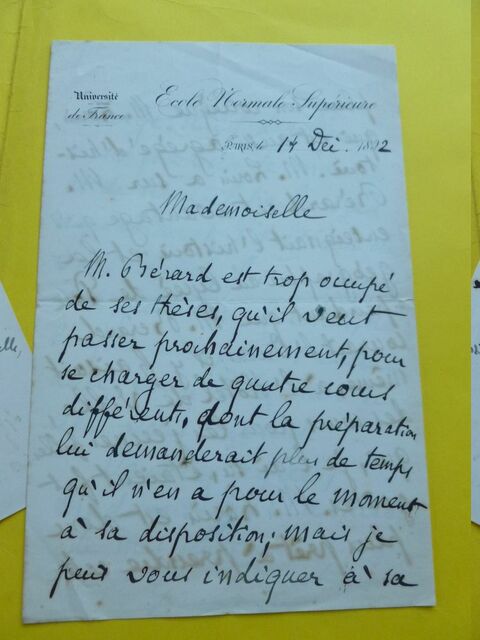 Université
de France
Ecole Normale Supérieure
PARIS, le 14 Déc. 1892
Mademoiselle
M. Bérard est trop occupé
de ses thèses, qu'il veut
passer prochainement, pour
se charger de quatre cours
différents, dont la préparation
lui demanderait plus de temps
qu'il n'en a pour le moment
à sa disposition; mais je
peux vous indiquer à sa